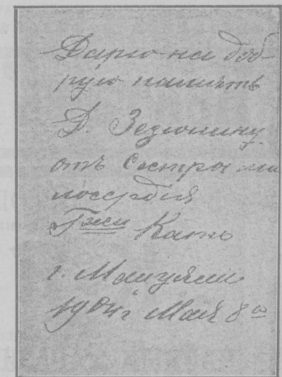 Дарю на доб-
рую память
Д. Зезюлину
отъ сестры ми
лосердія
Кань
г. Маиуяли
1904 г Мая 8го